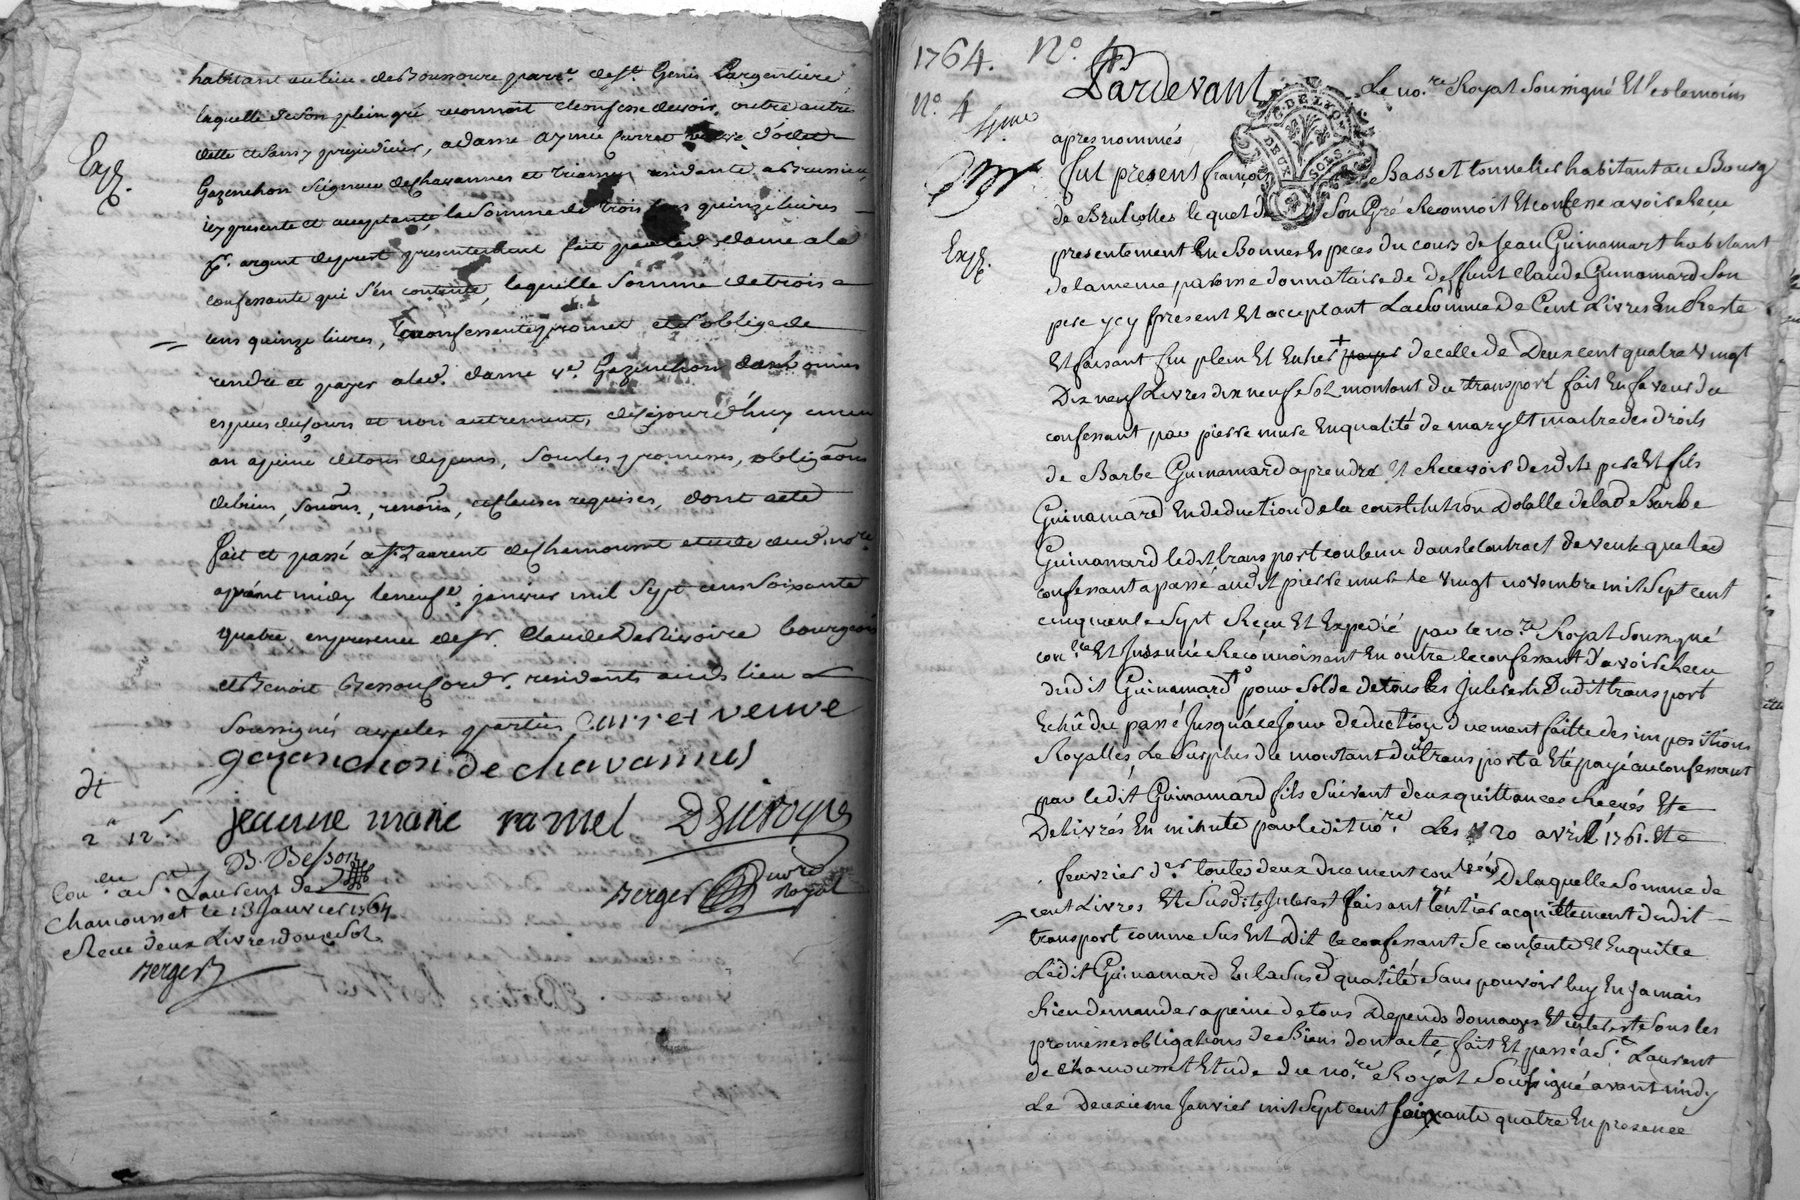 habitant au lieu de parr.e de St Genis Largentiere
laquelle de son plein gré reconnoit et confesse devoir, outre autre
dette et sans y prejudicier, a dame aymé veuve
Expé.
Gazanchon Seigneur de chavannes et residante a
icy presente et acceptante, la somme de trois cens quinze livres
pr. argent de prest presentement fait par lad. dame a la
confessante qui s'en contente, laquelle somme de trois
cens quinze livres, la confessente promet et s'oblige de
rendre et payer a lad. dame ve. Gazanchon dans
especes du cours et non autrement, de ce jour d'huy en un
an a peine de tous depens, sous les promesses, obligãons
de biens, soũons, renõns, et clauses requises, dont acte
fait et passé a St Laurent de chamousset etude dud. no.re
avant midy le neufe. janvier mil sept cens soixante
quatre en presence de Sr. Claude Desrivoire bourgeois
et Benoit residants aud. lieu
soussignés avec les parties veuve
gazanchon de chavannes
jeanne marie ramel Desrivoyre
B. Besson
Berger no.re Royal
dt
2 # 12 s
Con.lé a St. Laurent de
Chamousset le 13 Janvier 1764
Receu deux Livres douze Sols
Berger
1764. N.o 4
N.o 4
GE. DE LYON
DEUX SOLS
Pardevant Le no.re Royal Soussigné Et les temoins
apres nommés
Fut present françois Basset tonnelier habitant au Bourg
de Brullolles lequel de Son Gré Reconnoit Et confesse avoir Receu
Expé.
presentement En Bonnes Especes du cours de Jean Guinamard habitant
de la meme paroisse donnataire de deffunt Claude Guinamard Son
pere ycy present Et acceptant La Somme de Cent Livres En Reste
Et faisant fin plein Et Entier + payer de celle de Deux cent quatre vingt
Dix neuf Livres dix neuf Sols montant du transport fait En faveur du
confessant par pierre mure En qualité de mary Et maitre des droits
de Barbe Guinamard a prendre Et Recevoir desdits pere Et fils
Guinamard En deduction de la constitution Dotalle de lade Barbe
Guinamard ledit transport contenu dans le Contract de vente que led
confessant a passé audit pierre mure le vingt novembre mil Sept cent
cinquante Sept Receu Et Expedié par le no.re Royal Soussigné
con.lé Et Insinué Reconnoissant En outre le confessant d'avoir Receu
dudit Guinamard pour Solde de tous les Interests Dudit transport
Echû du passé Jusqu'a ce Jour deduction duement faitte des impositions
Royalles, Le Surplus du montant du transport a Eté payé au confessant
par ledit Guinamard fils Suivant deux quittances Receues Et
Delivrés En minute par ledit no.re Les 20 avril 1761. Et
fevrier d.er toutes deux duement con.lées De laquelle Somme de
cent Livres Et Susdits Interest faisant l'entier acquittement dudit
transport comme Sus Est Dit le confessant Se contente Et En quitte
Ledit Guinamard En la Susd qualité Sans pouvoir luy En Jamais
Rien demander a peine de tous Depends domages Et interest Sous les
promesses obligations de Biens dont acte, fait Et passé a St. Laurent
de chamousset Etude du no.re Royal Soussigné avant midy
Le Deuxieme Janvier mil Sept cent Soixante quatre En presence